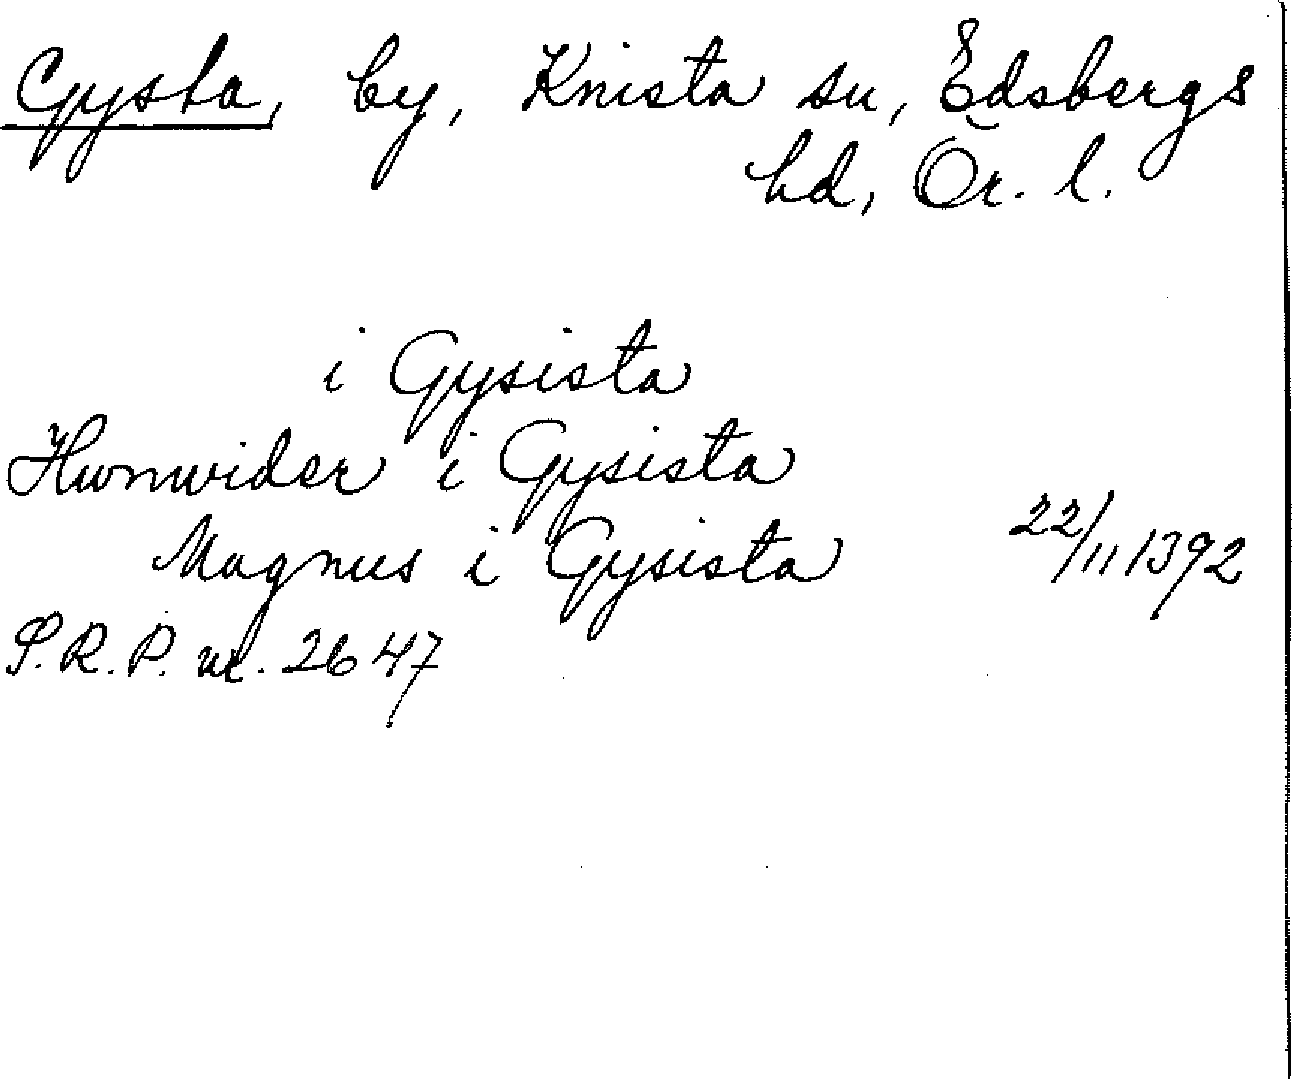 Gysta, by, Knista sn, Edsbergs
hd, Ör. l.
i Gysista
Hwnwider i Gysista
Magnus i Gysista 22/11 1392
S.R.P. nr. 2647